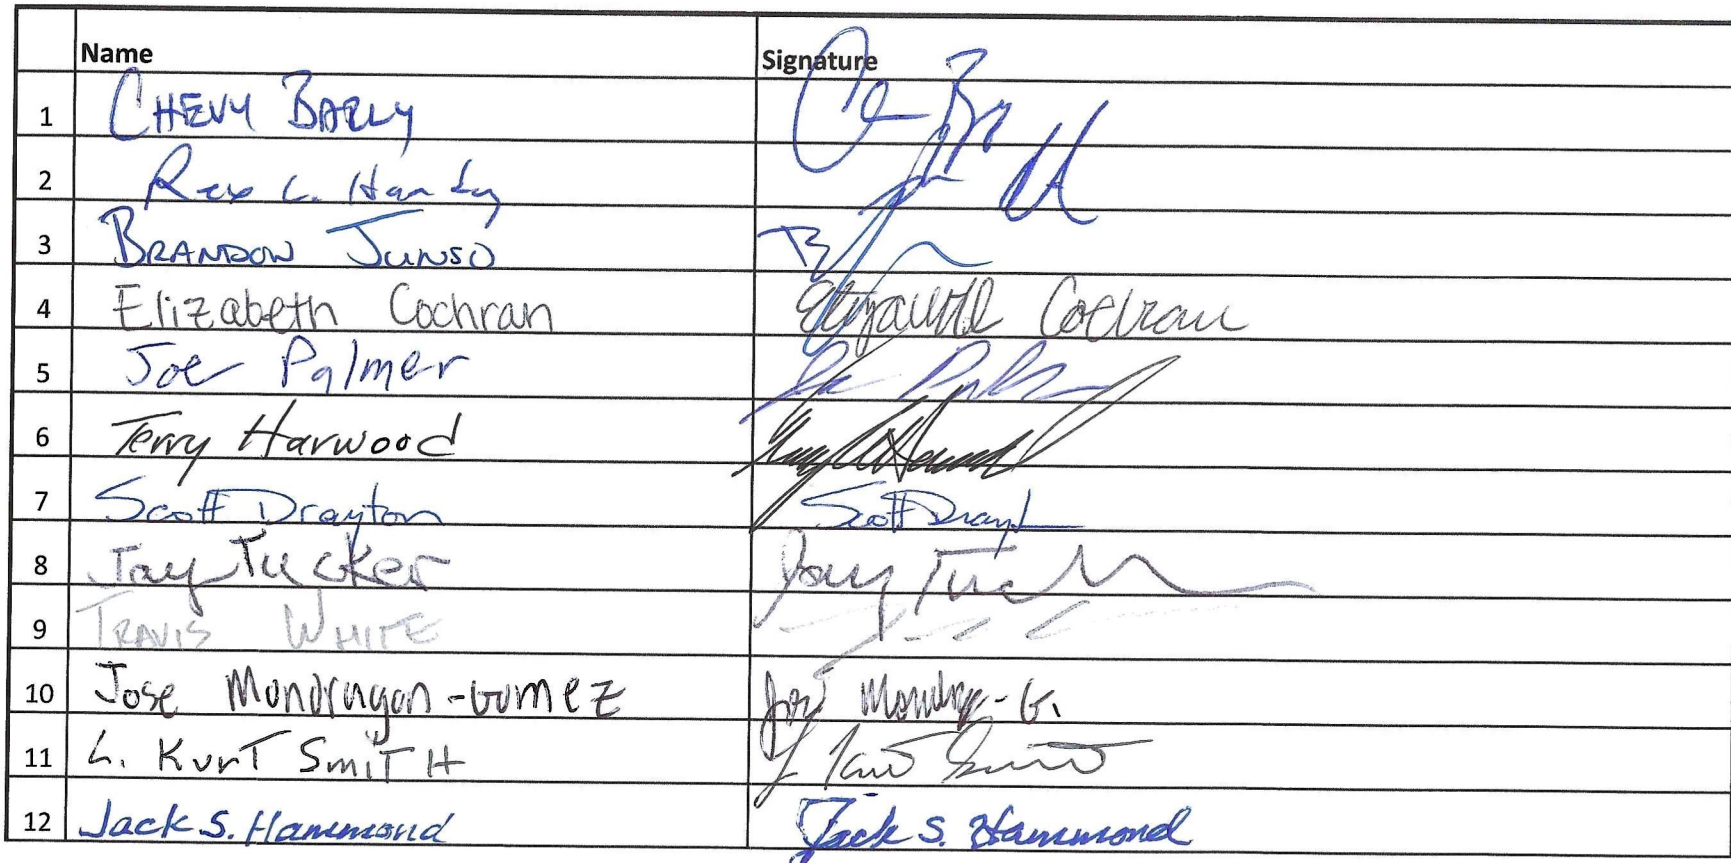 Name Signature
1 CHEVY BAELY
2 Rex L. Handy
3 BRANDON JUNSO
4 Elizabeth Cochran Elizabeth Cochran
5 Joe Palmer
6 Terry Harwood
7 Scott Drayton Scott Drayt
8 Jay Tucker Jay Tuc
9 TRAVIS WHITE
10 Jose Mondragon-Gomez
11 L. KurT SmiTH L Kurt Smith
12 Jack S. Hammond Jack S. Hammond